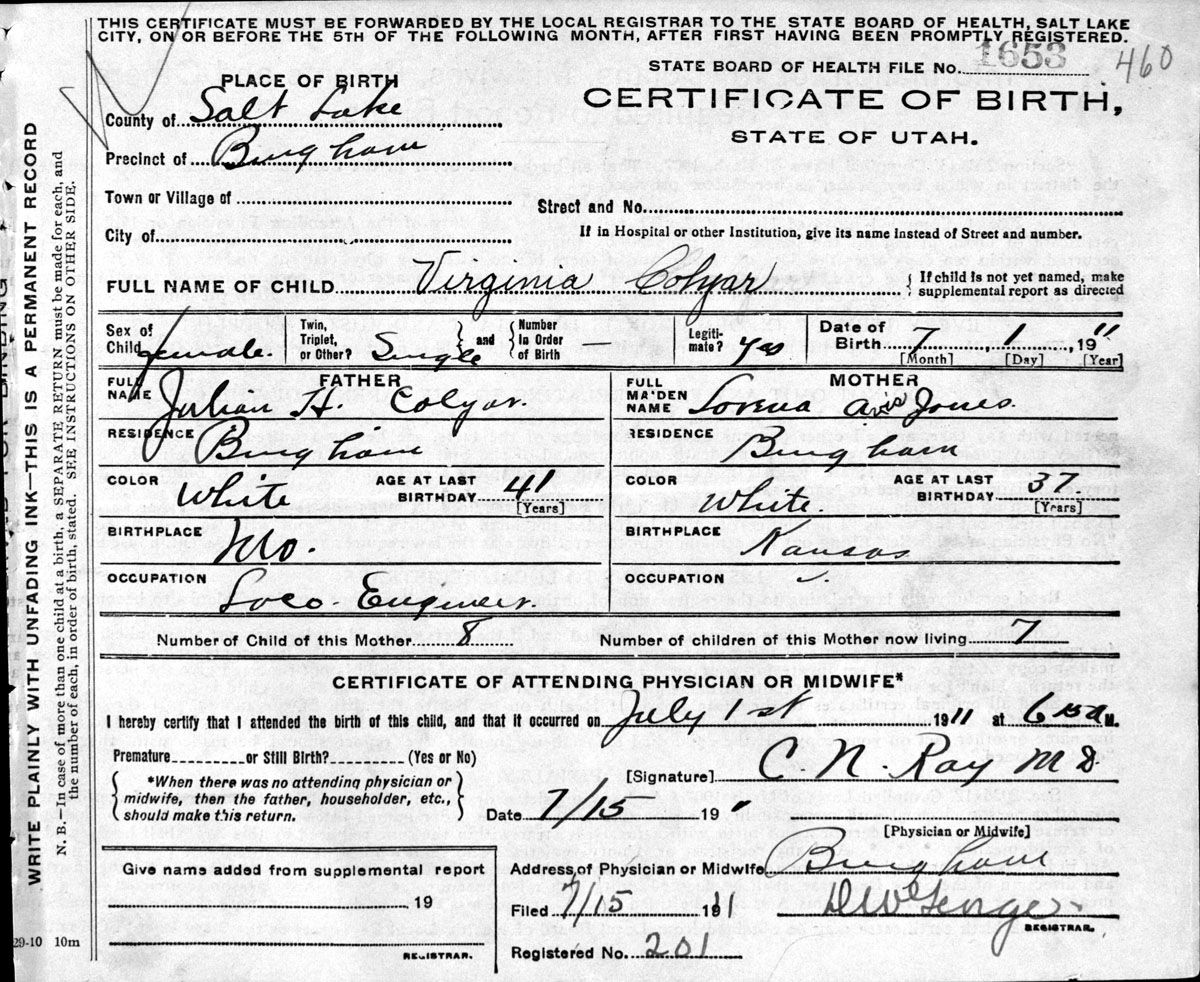 THIS CERTIFICATE MUST BE FORWARDED BY THE LOCAL REGISTRAR TO THE STATE BOARD OF HEALTH, SALT LAKE
CITY, ON OR BEFORE THE 5TH OF THE FOLLOWING MONTH, AFTER FIRST HAVING BEEN PROMPTLY REGISTERED.
STATE BOARD OF HEALTH FILE No. 1653 460
PLACE OF BIRTH
CERTIFICATE OF BIRTH,
STATE OF UTAH.
County of Salt Lake
Precinct of Bingham
Town or Village of
Street and No.
City of
If in Hospital or other Institution, give its name instead of Street and number.
FULL NAME OF CHILD Virginia Colyar { If child is not yet named, make supplemental report as directed
Sex of Child female. Twin, Triplet, or Other? Single { and } Number In Order of Birth Legiti-mate? Yes Date of Birth 7 1, 1911
[Month] [Day] [Year]
FATHER
FULL NAME Julian H. Colyar.
RESIDENCE Bingham
COLOR White AGE AT LAST BIRTHDAY 41 [Years]
BIRTHPLACE Mo.
OCCUPATION Loco. Engineer.
MOTHER
FULL MAIDEN NAME Lorena Avis Jones.
RESIDENCE Bingham
COLOR White. AGE AT LAST BIRTHDAY 37 [Years]
BIRTHPLACE Kansas
OCCUPATION
Number of Child of this Mother 8 Number of children of this Mother now living 7
CERTIFICATE OF ATTENDING PHYSICIAN OR MIDWIFE*
I hereby certify that I attended the birth of this child, and that it occurred on July 1st 1911 at 6 15 A M.
Premature or Still Birth? (Yes or No)
*When there was no attending physician or
midwife, then the father, householder, etc.,
should make this return.
[Signature] C. N. Ray M D.
Date 7/15 19 "
[Physician or Midwife]
Give name added from supplemental report
19
REGISTRAR.
Address of Physician or Midwife Bingham
Filed 7/15 1911
REGISTRAR.
Registered No. 201
29-10 10m
WRITE PLAINLY WITH UNFADING INK—THIS IS A PERMANENT RECORD
N. B.—In case of more than one child at a birth, a SEPARATE RETURN must be made for each, and
the number of each, in order of birth, stated. SEE INSTRUCTIONS ON OTHER SIDE.